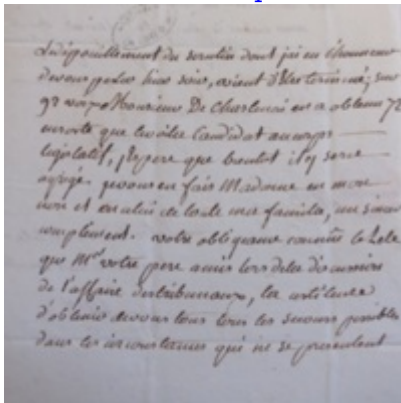 Le dépouillement du scrutin dont j'ai eu l'honneur
de vous parler hier soir, vient d'être terminé; sur
92 voix Monsieur De Chastenai en a obtenu 72
ensorte que le voilà Candidat au corps
législatif, j'espère que bientot il y sera
je vous en fais Madame en mon
nom et en celui de toute ma famille, un sincère
compliment. votre obligeance comme le Zele
que Mr votre pere a mis lors de la discussion
de l'affaire des tribunaux,
d'obtenir de vous tous les secours possibles
dans les circonstances qui ne se presentent